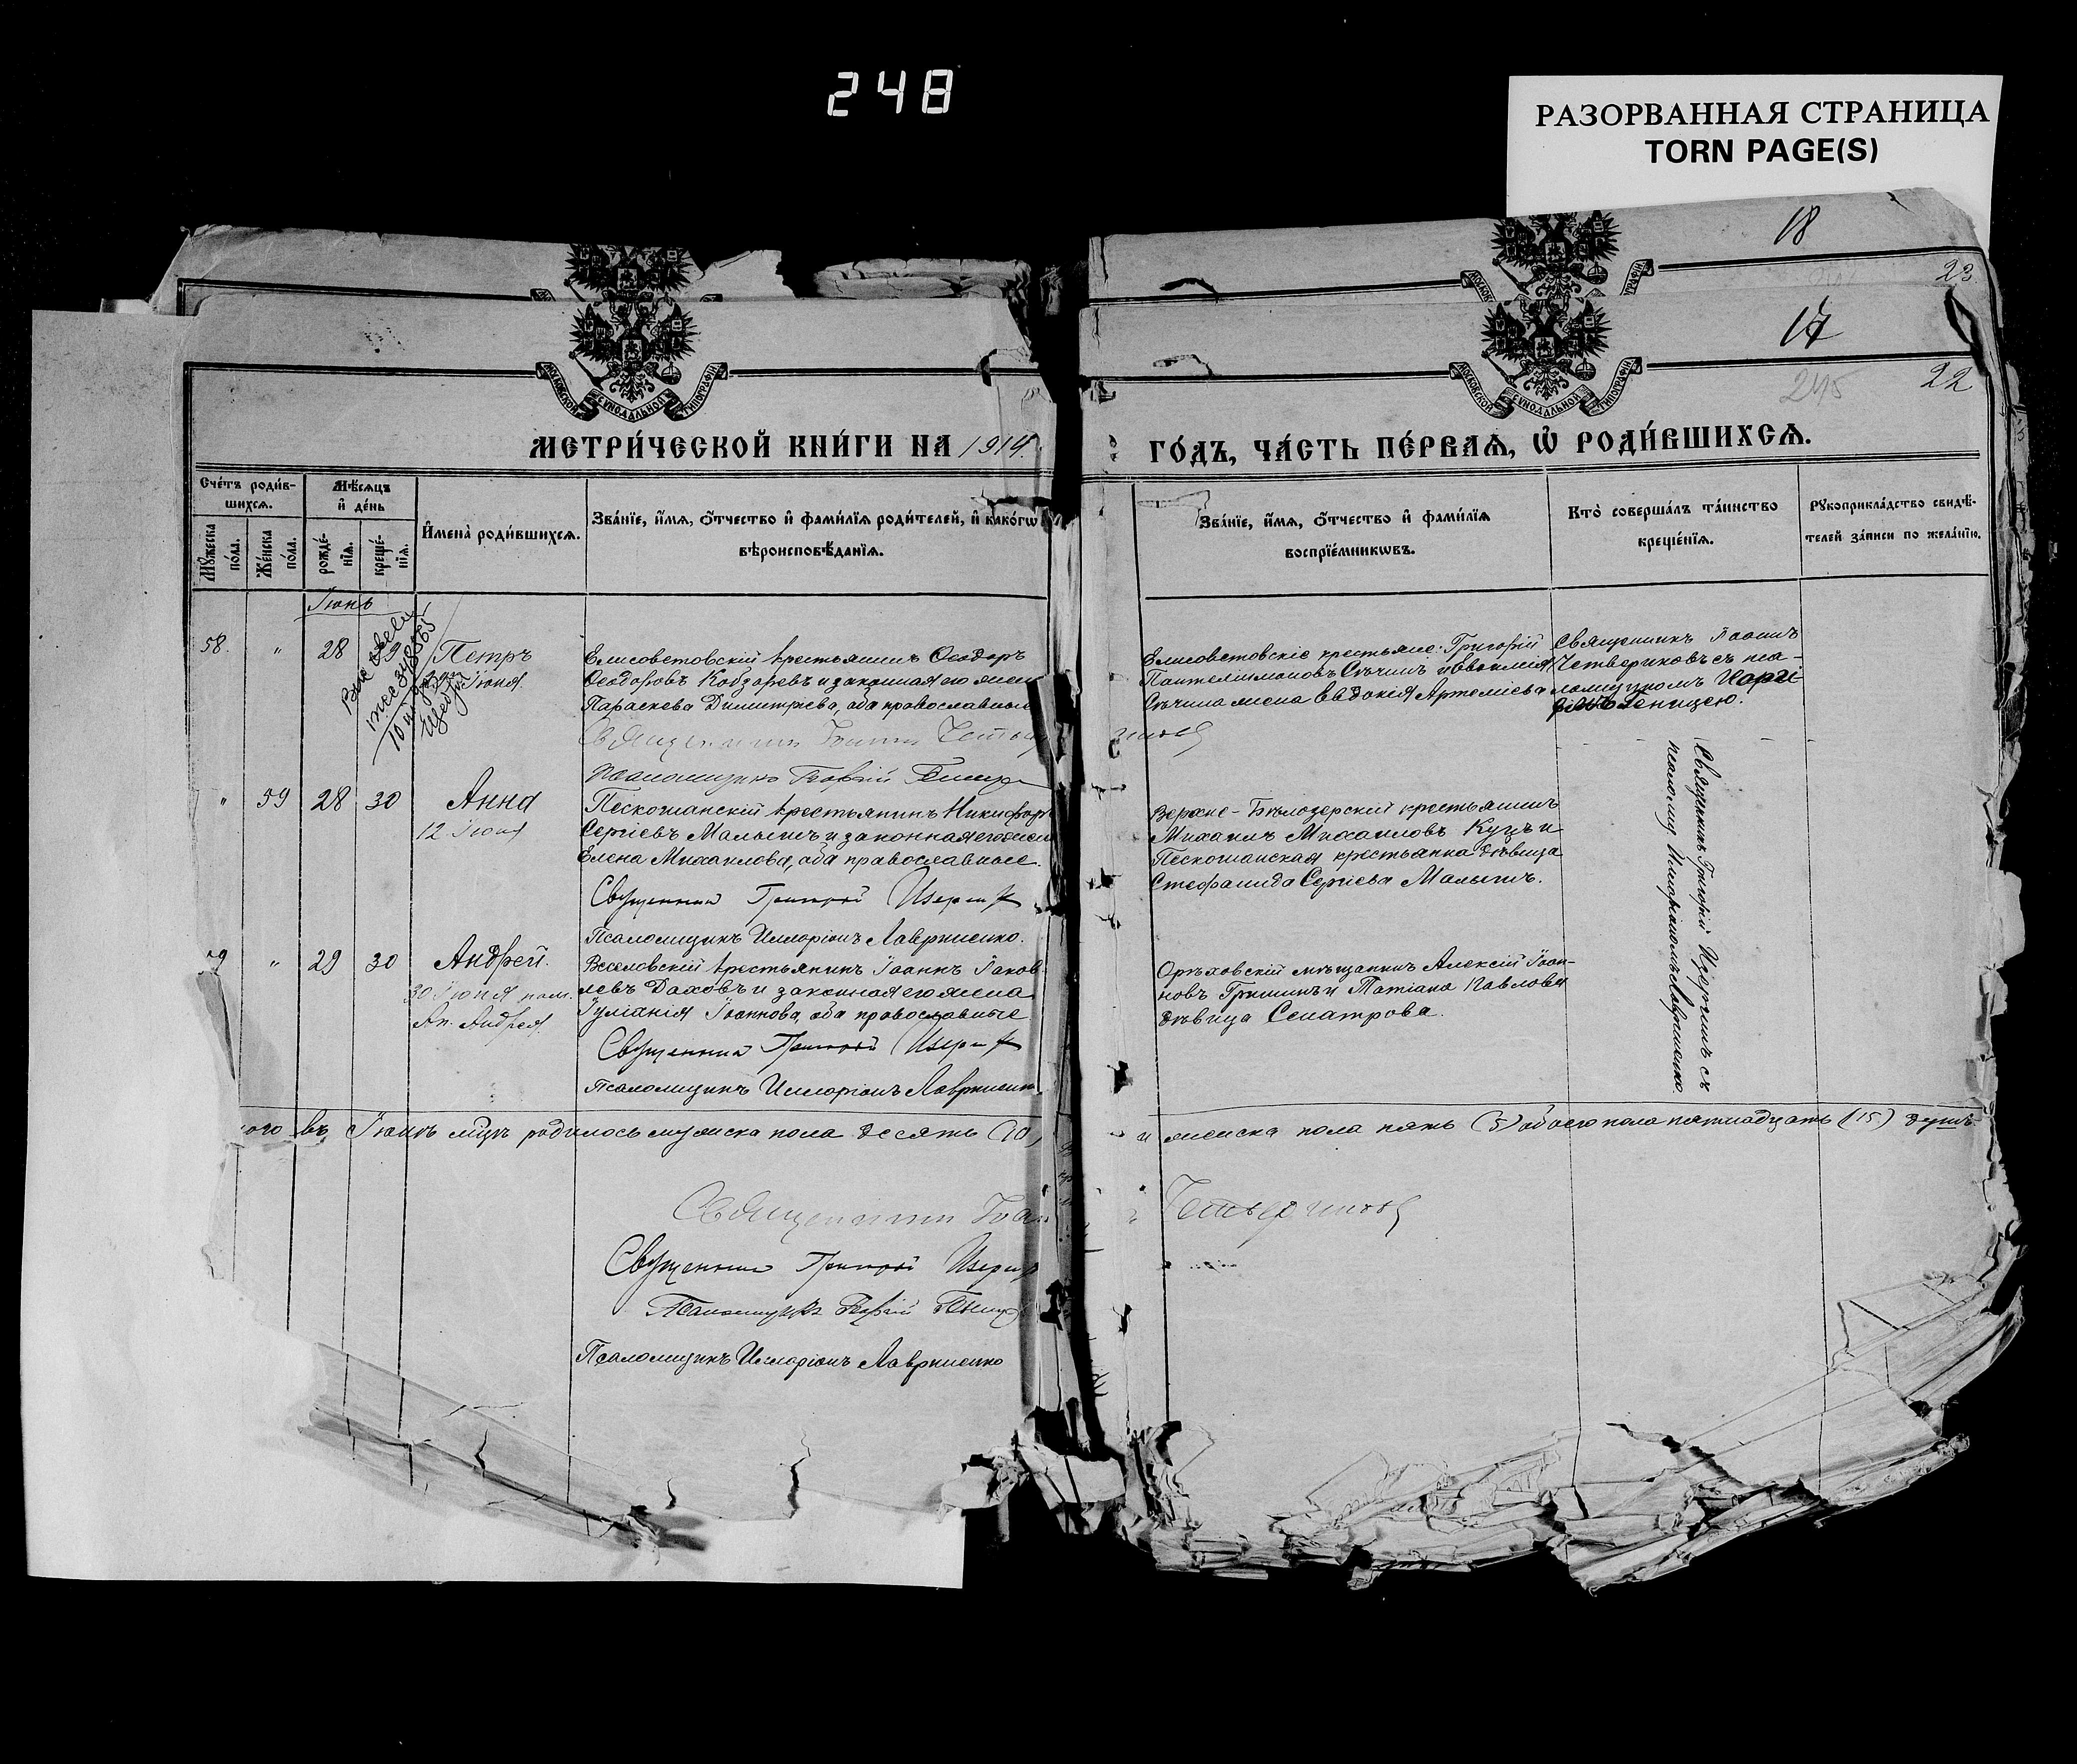 248
РАЗОРВАННАЯ СТРАНИЦА
TORN PAGE(S)
18
23
17
22
245
МОСКОВСКОЙ СѴНОДАЛЬНОЙ ТИПОГРАФІИ
МОСКОВСКОЙ СѴНОДАЛЬНОЙ ТИПОГРАФІИ
МЕТРИ́ЧЕСКОЙ КНИ́ГИ НА 1914
ГО́ДЪ, ЧА́СТЬ ПЕ́РВАѦ, Ѽ РОДИ́ВШИХСѦ.
Сче́тъ роди́в-
шихсѧ.
Мѣ́сѧцъ
и҆ де́нь
Мꙋ́жеска
по́ла.
Же́нска
по́ла.
рожде́-
нїѧ.
креще́-
нїѧ.
И҆мена̀ роди́вшихсѧ.
Зва́нїе, и҆́мѧ, ѻ҆́тчество и҆ фами́лїѧ роди́телей, и҆ како́гѡ
вѣроисповѣ́данїѧ.
Зва́нїе, и҆́мѧ, ѻ҆́тчество и҆ фами́лїѧ
воспрїе́мникѡвъ.
Кто̀ соверша́лъ та́инство
креще́нїѧ.
Рꙋкоприкла́дство свидѣ́-
телей за́писи по жела́нїю.
Іюнь
58. " 28 29 Петръ
Іюня.
Елисоветовскій крестьянинъ Ѳеодоръ
Ѳеодоровъ Кобзаревъ и законная его жена
Параскева Димитріева, оба православные
Священникъ Іоаннъ Четвериковъ
Псаломщикъ Георгій
Елисоветовскіе крестьяне: Григорій
Пантелиимоновъ Сѣчинъ и
Сѣчина жена Евдокія Артеміева
Священникъ Іоаннъ
Четвериковъ съ пса-
ломщикомъ
" 59 28 30 Анна
12 Іюня
Пескошанскій крестьянинъ Никифоръ
Сергіевъ Малышъ и законная его жена
Елена Михаилова, оба православные.
Священникъ Григорій
Псаломщикъ Иларіонъ Лавриненко.
Верхне-Бѣлозерскій крестьянинъ
Михаилъ Михаиловъ Куцъ и
Пескошанская крестьянка дѣвица
Стефанида Сергіева Малышъ.
Священникъ Григорій
псаломщ. Иларіономъ Лавриненко.
" 29 30 Андрей.
30 Іюня пам.
Ап. Андрея.
Веселовскій крестьянинъ Іоаннъ Іаков-
левъ Даховъ и законная его жена
Іуліанія Іоаннова, оба православные
Священникъ Григорій
Псаломщикъ Иларіонъ Лавриненко
Орѣховскій мѣщанинъ Алексій Іоан-
новъ Гришинъ и Татіана Павлова
дѣвица Сенатрова.
въ Іюнѣ мцѣ родилось мужеска пола десять (10)
и женска пола пять (5) обоего пола пятнадцать (15) душъ.
Священникъ Іоаннъ
Четвериковъ
Священникъ Григорій
Псаломщикъ Георгій
Псаломщикъ Иларіонъ Лавриненко